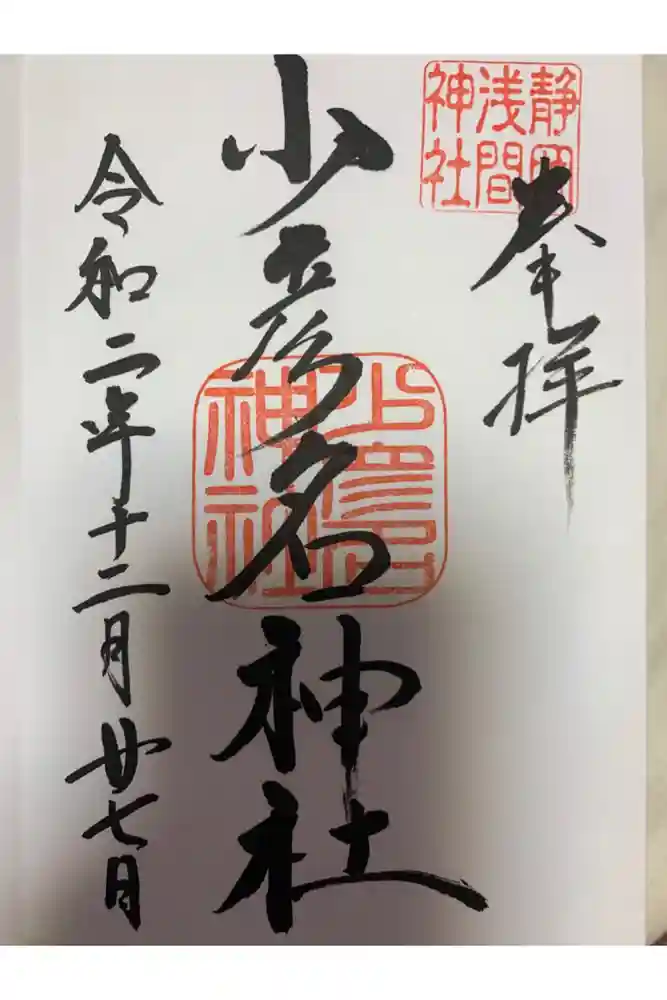 静岡
浅間
神社
奉拝
小彦名神社
少彦名
神社
令和二年十二月廿七日